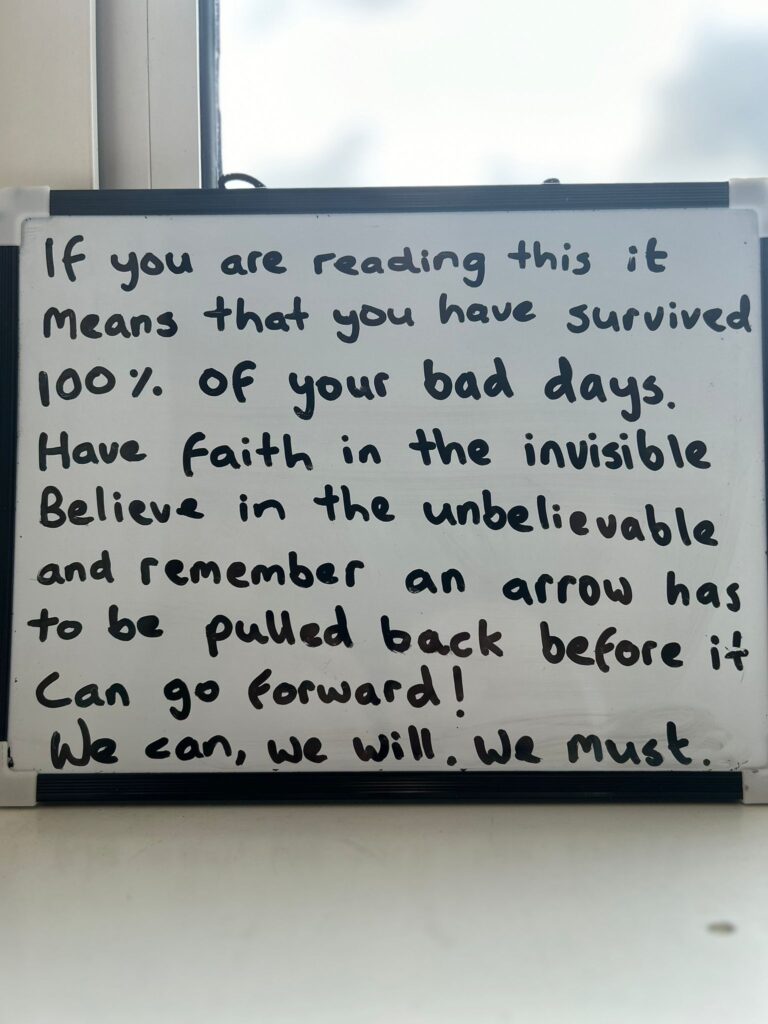 If you are reading this it
Means that you have survived
100% of your bad days.
Have faith in the invisible
Believe in the unbelievable
and remember an arrow has
to be pulled back before it
Can go forward!
We can, we will. We must.